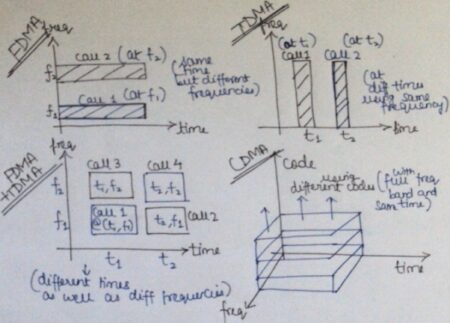 FDMA
freq
call 2 (at f₂)
(same
time
but different
frequencies)
f₂
call 1 (at f₁)
f₁
time
TDMA
freq
(at t₁)
call 1
(at t₂)
call 2
(at
diff times
using same
frequency)
t₁
t₂
time
FDMA
+TDMA
freq
call 3
call 4
f₂
t₁, f₂
t₂, f₂
f₁
call 1
@(t₁, f₁)
t₂, f₁
call 2
t₁
t₂
time
(different times
as well as diff frequencies)
CDMA
code
using
different codes
(with
full freq
band and
same time)
time
freq